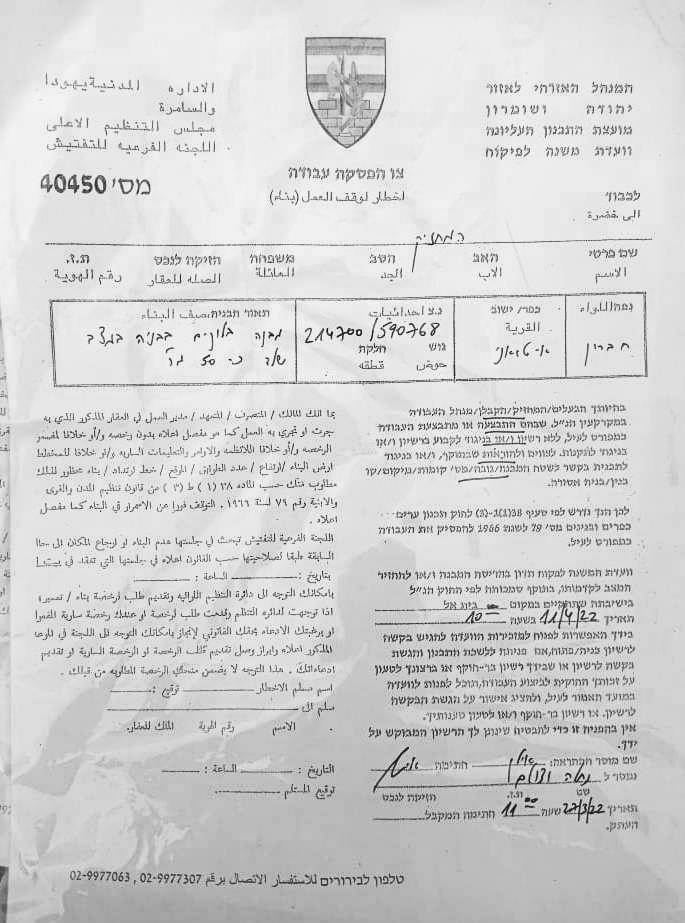 המנהל האזרחי לאזור
יהודה ושומרון
מועצת התכנון העליונה
וועדת משנה לפיקוח
الاداره المدنية يهودا
والسامرة
مجلس التنظيم الاعلى
اللجنه الفرعيه للتفتيش
צו הפסקת עבודה
اخطار لوقف العمل (بناء)
מס' 40450
לכבוד
الى حضرة
המחזיק
שם פרטי האב הסב משפחה הזיקה לנכס ת.ז.
الاسم الاب الجد العائلة الصله للعقار رقم الهوية
נפה اللواء כפר/ ישוב נ.צ احداثيات תאור הבניה وصف البناء
القرية 214700/590768 מבנה בלוקים בבניה במצב
חברון גוש חלקה שלד כ- 50 מ"ר
حوض قطعه
בהיותך הבעלים/המחזיק/הקבלן/מנהל העבודה
במקרקעין הנ"ל, שבהם התבצעה או מתבצעת העבודה
כמפורט לעיל, ללא רשיון ו/או בניגוד לקבוע ברשיון ו/או
בניגוד לתקנות, לצווים ולהוראות שבתוקף, ו/או בניגוד
לתכנית בקשר לשטח המבנה/גובה/מס' קומות/מיקום/קו
בנין/בניה אסורה.
לכן הנך נדרש לפי סעיף 38(1)-(3) לחוק תכנון ערים
כפרים ובניינים מס' 79 לשנת 1966 להפסיק את העבודה
כמפורט לעיל.
וועדת המשנה לפקוח תדון בהריסת המבנה ו/או להחזיר
המצב לקדמותו, בתוקף סמכותה לפי החוק הנ"ל
בישיבתה שתתקיים במקום בית אל
תאריך 11/4/22 בשעה 10 00
בידך האפשרות לפנות למזכירות הוועדה להגיש בקשה
לרשיון בניה/פתוח, אם פנית ללשכת התכנון והגשת
בקשה לרשיון או שבידך רשיון בר-תוקף או ברצונך לטעון
על זכותך החוקית לביצוע העבודה, תוכל לפנות לוועדה
במועד האמור לעיל, ולהציג אישור על הגשת הבקשה
לרשיון, או רשיון בר-תוקף ו/או לטעון טענותיך.
אין בהפניה זו כדי להבטיח שינתן לך הרשיון המבוקש על
ידך.
שם מוסר ההתראה: אילן חתימה
נמסר ל
שם ת.ז. הזיקה לנכס
תאריך 27/3/22 שעה 11 00 חתימת המקבל
העתק.
بما انك المالك / المتصرف / المتعهد / مدير العمل في العقار المذكور الذي به
جرت او تجري به العمل كما هو مفصل اعلاه بدون رخصه و/أو خلافا للمفسر
الرخصه و/أو خلافا للانظمه والاوامر والتعليمات الساريه و/أو خلافا للمخطط
لارض البناء /ارتفاع / عدد الطوابق / الموقع / خط ارتداد / بناء محظور لذلك
مطلوب منك حسب الماده ٣٨ (١) ط (٣) من قانون تنظيم المدن والقرى
والابنية رقم ٧٩ لسنة ١٩٦٦ . التوقف فورا عن الاستمرار في البناء كما مفصل
اعلاه .
اللجنه الفرعيه للتفتيش تبحث في جلستها هدم البناء او ارجاع المكان الى حالته
السابقة طبقا لصلاحيتها حسب القانون اعلاه في جلستها التي تعقد في
بتاريخ : الساعة :
بإمكانك التوجه الى دائرة التنظيم اللوائيه وتقديم طلب لرخصة بناء / تعمير؛
اذا توجهت لدائره التنظيم وقدمت طلب لرخصة او عندك رخصة سارية المفعول
او برغبتك الادعاء بحقك القانوني لإنجاز بامكانك التوجه الى اللجنة في الموعد
المذكور اعلاه وابراز وصل تقديم طلب الرخصة او الرخصة السارية او تقديم
ادعاءاتك . هذا التوجه لا يضمن منحك الرخصة المطلوبه من قبلك .
اسم مسلم الاخطار توقيع :
سلم الى
الاسم رقم الهوية المالك للعقار.
التاريخ : الساعة :
توقيع المستلم
טלפון לבירורים للاستفسار الاتصال برقم 02-9977307 , 02-9977063